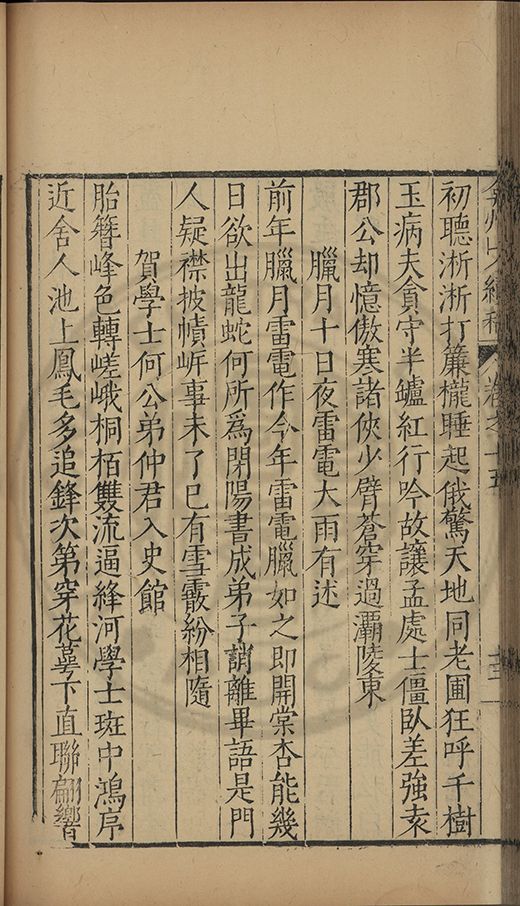 弇州山人續稿 卷之十五 十三
初聽淅淅打簾櫳睡起俄驚天地同老圃狂呼千樹
玉病夫貪守半罏紅行吟故讓孟處士僵臥差強袁
郡公却憶傲寒諸俠少臂蒼穿過灞陵東
臘月十日夜雷電大雨有述
前年臘月雷電作今年雷電臘如之即開棠杏能幾
日欲出龍蛇何所爲閉陽書成弟子誚離畢語是門
人疑襟披幘岸事未了已有雪霰紛相隨
賀學士何公弟仲君入史館
胎簪峰色轉嵯峨桐栢雙流逼絳河學士班中鴻序
近舍人池上鳳毛多追鋒次第穿花蕚下直聯翩響